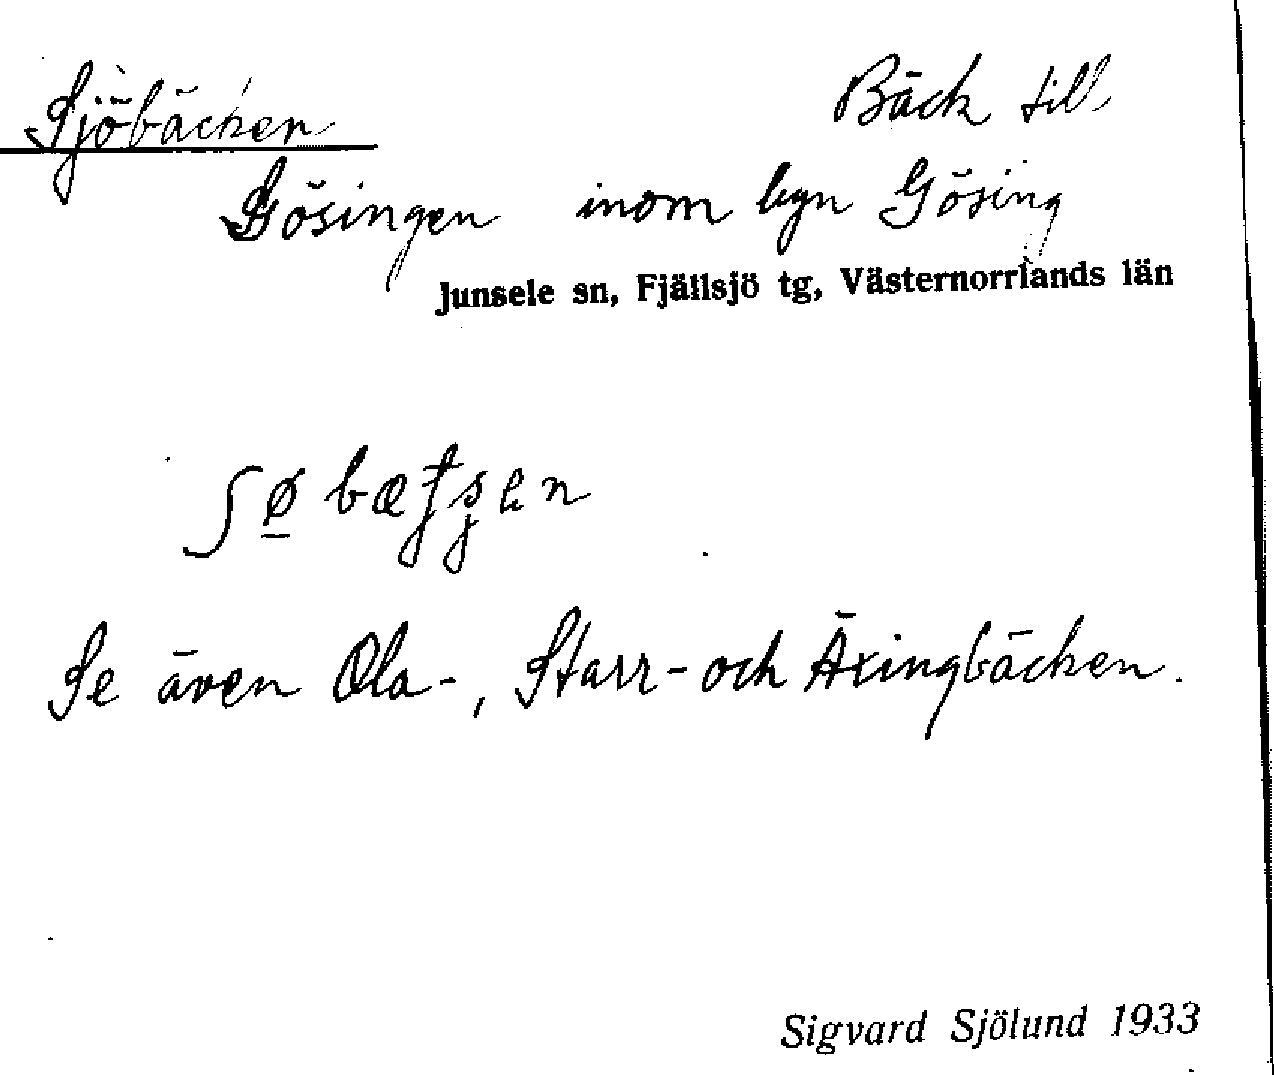 Sjöbäcken Bäck till
Gösingen inom byn Gösing
Junsele sn, Fjällsjö tg, Västernorrlands län
Se även Ola-, Starr- och Äxingbäcken.
Sigvard Sjölund 1933